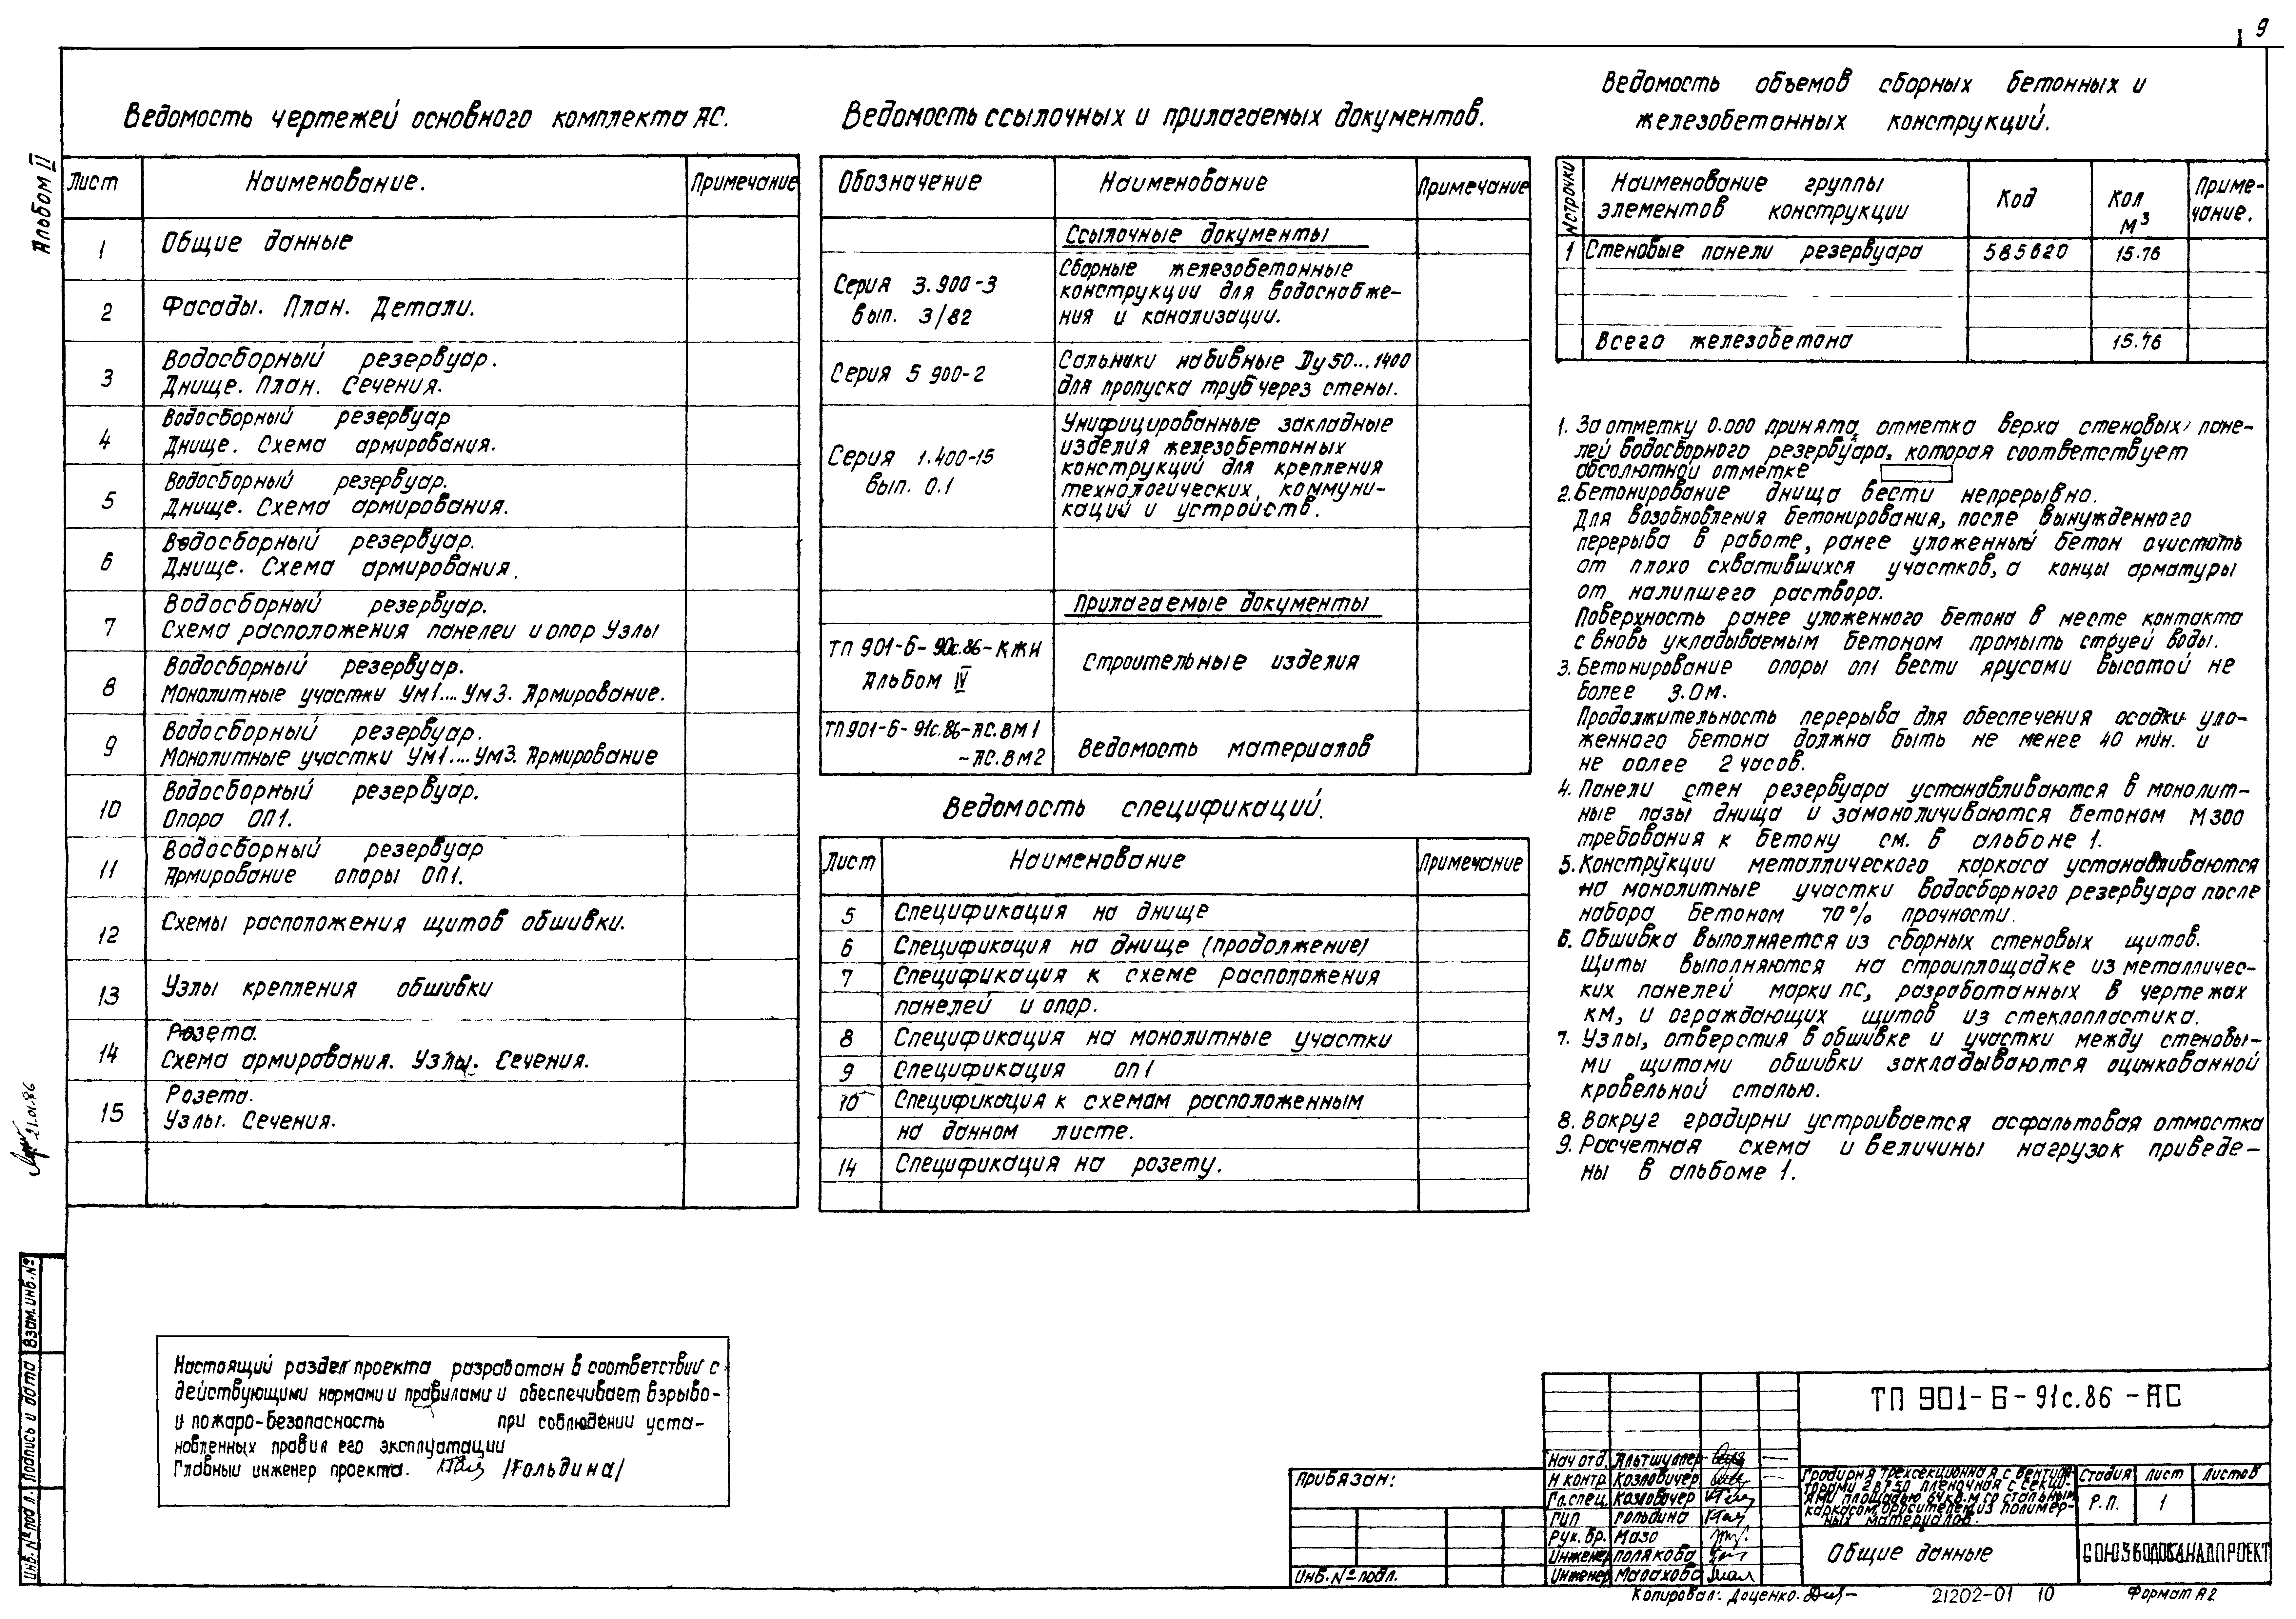 9
Альбом II
Ведомость чертежей основного комплекта АС.
Лист Наименование. Примечание
1 Общие данные
2 Фасады. План. Детали.
3 Водосборный резервуар.
Днище. План. Сечения.
4 Водосборный резервуар
Днище. Схема армирования.
5 Водосборный резервуар.
Днище. Схема армирования.
6 Водосборный резервуар.
Днище. Схема армирования.
7 Водосборный резервуар.
Схема расположения панелей и опор Узлы
8 Водосборный резервуар.
Монолитные участки Ум1.... Ум3. Армирование.
9 Водосборный резервуар.
Монолитные участки Ум1.... Ум3. Армирование
10 Водосборный резервуар.
Опора ОП1.
11 Водосборный резервуар
Армирование опоры ОП1.
12 Схемы расположения щитов обшивки.
13 Узлы крепления обшивки
14 Розета.
Схема армирования. Узлы. Сечения.
15 Розета.
Узлы. Сечения.
Ведомость ссылочных и прилагаемых документов.
Обозначение Наименование Примечание
Ссылочные документы
Серия 3.900-3
вып. 3/82
Сборные железобетонные
конструкции для водоснабже-
ния и канализации.
Серия 5 900-2
Сальники набивные Ду 50...1400
для пропуска труб через стены.
Серия 1.400-15
вып. 0.1
Унифицированные закладные
изделия железобетонных
конструкций для крепления
технологических, коммуни-
каций и устройств.
Прилагаемые документы
ТП 901-6-90с.86-КЖИ
Альбом IV
Строительные изделия
ТП 901-6-91с.86-АС.ВМ1
-АС.ВМ2
Ведомость материалов
Ведомость спецификаций.
Лист Наименование Примечание
5 Спецификация на днище
6 Спецификация на днище (продолжение)
7 Спецификация к схеме расположения
панелей и опор.
8 Спецификация на монолитные участки
9 Спецификация ОП1
10 Спецификация к схемам расположенным
на данном листе.
14 Спецификация на розету.
Ведомость объемов сборных бетонных и
железобетонных конструкций.
№ строки Наименование группы
элементов конструкции
Код
Кол
м³
Приме-
чание.
1 Стеновые панели резервуара 585620 15.76
Всего железобетона 15.76
1. За отметку 0.000 принята отметка верха стеновых пане-
лей водосборного резервуара, которая соответствует
абсолютной отметке
2. Бетонирование днища вести непрерывно.
Для возобновления бетонирования, после вынужденного
перерыва в работе, ранее уложенный бетон очистить
от плохо схватившихся участков, а концы арматуры
от налипшего раствора.
Поверхность ранее уложенного бетона в месте контакта
с вновь укладываемым бетоном промыть струей воды.
3. Бетонирование опоры ОП1 вести ярусами высотой не
более 3.0м.
Продолжительность перерыва для обеспечения осадки уло-
женного бетона должна быть не менее 40 мин. и
не более 2 часов.
4. Панели стен резервуара устанавливаются в монолит-
ные пазы днища и замоноличиваются бетоном М300
требования к бетону см. в альбоне 1.
5. Конструкции металлического каркаса устанавливаются
на монолитные участки водосборного резервуара после
набора бетоном 70% прочности.
6. Обшивка выполняется из сборных стеновых щитов.
Щиты выполняются на стройплощадке из металличес-
ких панелей марки ПС, разработанных в чертежах
КМ, и ограждающих щитов из стеклопластика.
7. Узлы, отверстия в обшивке и участки между стеновы-
ми щитами обшивки закладываются оцинкованной
кровельной сталью.
8. Вокруг градирни устроивается асфальтовая отмостка
9. Расчетная схема и величины нагрузок приведе-
ны в альбоме 1.
21.01.86
Инв. № подл. Подпись и дата Взам. инв. №
Настоящий раздел проекта разработан в соответствии с
действующими нормами и правилами и обеспечивает взрыво-
и пожаро-безопасность при соблюдении уста-
новленных правил его эксплуатации
Главный инженер проекта. /Гольдина/
Привязан:
Инв. № подл.
Нач отд. Альтшуллер
Н контр Козловичер
Гл.спец. Козловичер
ГИП Гольдина
Рук. бр. Мазо
Инженер Полякова
Инженер Малахова
ТП 901-6-91с.86-АС
Градирня трехсекционная с вентиля-
торами 2ВГ50 пленочная с секци-
ями площадью 64 кв.м со стальным
каркасом, оросителем из полимер-
ных материалов.
Стадия Лист Листов
Р.П. 1
Общие данные
СОЮЗВОДОКАНАЛПРОЕКТ
Копировал: Доценко.
21202-01 10
Формат А2